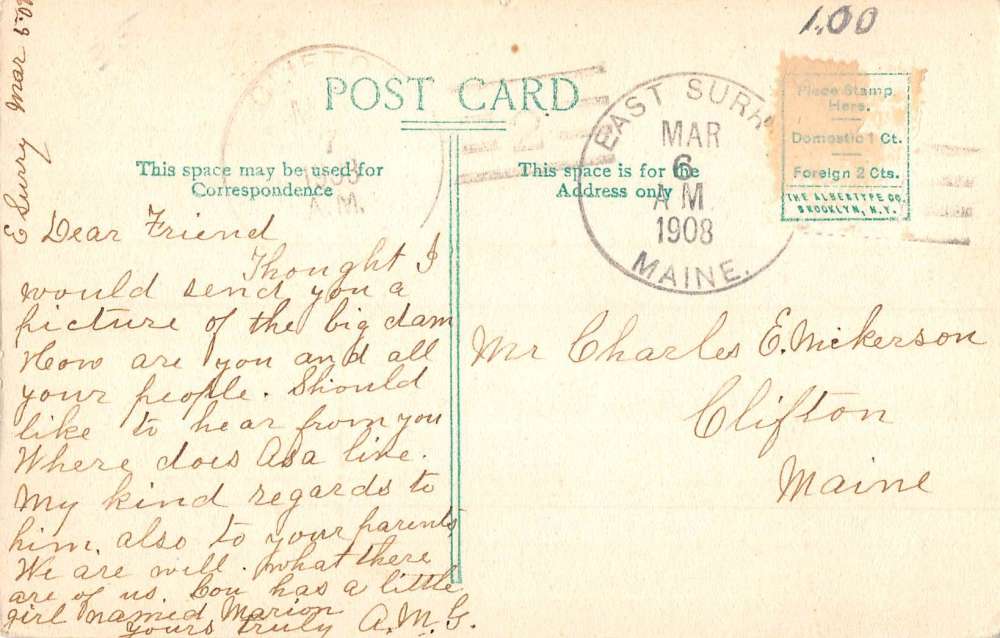 1.00
E Surry Mar 5-08
POST CARD
This space may be used for
Correspondence
This space is for the
Address only
CLIFTON
7
1908
A.M.
EAST SURRY
MAR
6
A M
1908
MAINE.
Place Stamp
Here.
Domestic 1 Ct.
Foreign 2 Cts.
THE ALBERTYPE CO.
BROOKLYN, N.Y.
Dear Friend
Thought I
would send you a
picture of the big dam
How are you and all
your people. Should
like to hear from you
Where does Asa live.
My kind regards to
him. also to your parents
We are well. what there
are of us. Lou has a little
girl named Marion
yours truly A.M.G.
Mr Charles E. Nickerson
Clifton
Maine